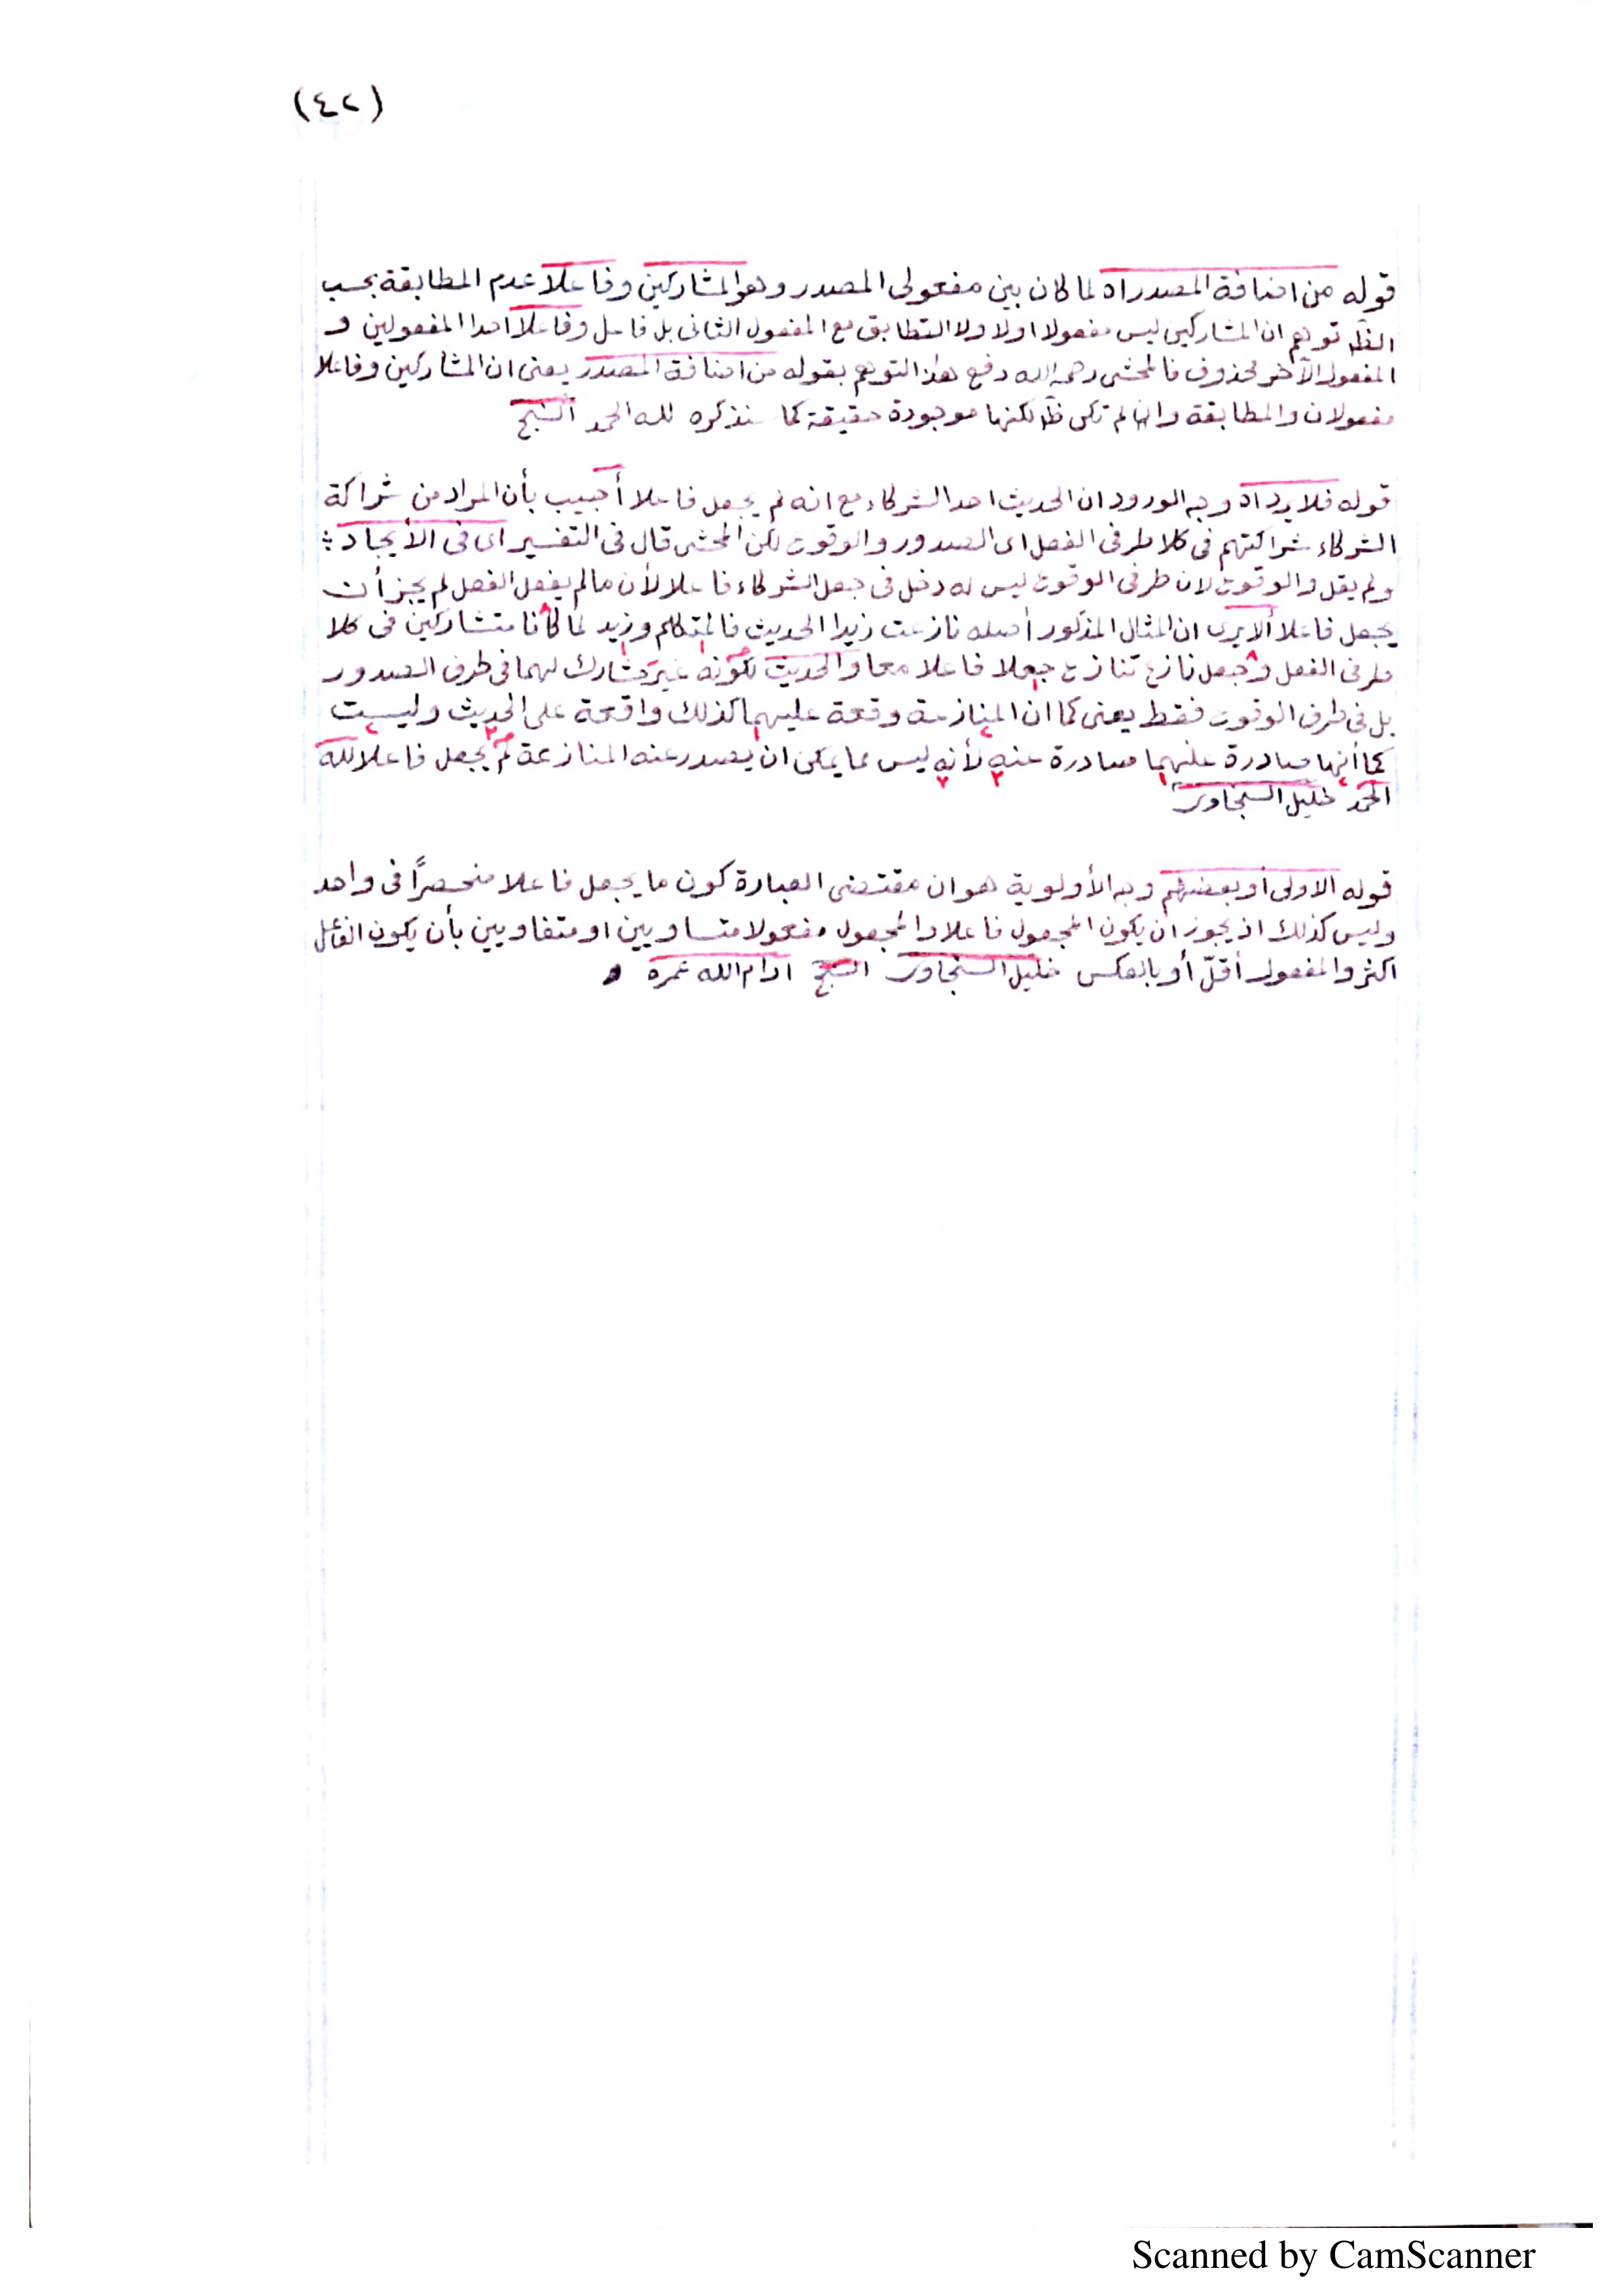 (٤٢)
قوله من اضافة المصدر اه لما كان بين مفعولى المصدر وهو المشاركين وفاعلا عدم المطابقة بحسب
الظ توهم ان المشاركين ليس مفعولا اولا ولا التطابق مع المفعول الثانى بل فاعل وفاعلا احد المفعولين و
المفعول الآخر محذوف فالمحشى رحمه الله دفع هذا التوهم بقوله من اضافة المصدر يعنى ان المشاركين وفاعلا
مفعولان والمطابقة وان لم تكن ظ لكنها موجودة حقيقة كما سنذكره لله الحمد
قوله فلا يرد اه وجه الورود ان الحديث احد الشركاء مع انه لم يجعل فاعلا أجيب بأن المراد من شراكة
الشركاء شراكتهم فى كلا طرفى الفعل اى الصدور والوقوع لكن المحشى قال فى التفسير اى فى الأيجاد
ولم يقل والوقوع لان طرفى الوقوع ليس له دخل فى جعل الشركاء فاعلا لأن ما لم يفعل الفعل لم يجز أن
يجعل فاعلا ألا يرى ان المثال المذكور أصله نازعت زيدا الحديث فالمتكلم وزيد لما كانا متشاركين فى كلا
طرفى الفعل وجعل نازع تنازع جعلا فاعلا معا والحديث لكونه غير مشارك لهما فى طرف الصدور
بل فى طرف الوقوع فقط يعنى كما ان المنازعة وقعة عليهما كذلك واقعة على الحديث وليست
كما أنها صادرة عليهما صادرة عنه لأنه ليس مما يمكن ان يصدر عنه المنازعة لم يجعل فاعلا لله
الحمد خليل السنجاوى
قوله الاولى أو بعضهم وجه الأولوية هو ان مقتضى العبارة كون ما يجعل فاعلا منحصرًا فى واحد
وليس كذلك اذ يجوز ان يكون المجعول فاعلا والمجعول مفعولا متساويين او متفاويين بأن يكون الفاعل
اكثر والمفعول أقلّ أو بالعكس خليل السنجاوى ادام الله عمره
Scanned by CamScanner